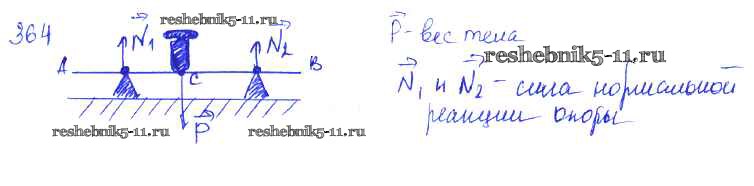 364
N₁ reshebnik5-11.ru N₂
A C B
P
reshebnik5-11.ru reshebnik5-11.ru
P - вес тела
reshebnik5-11.ru
N₁ и N₂ - сила нормальной
реакции опоры